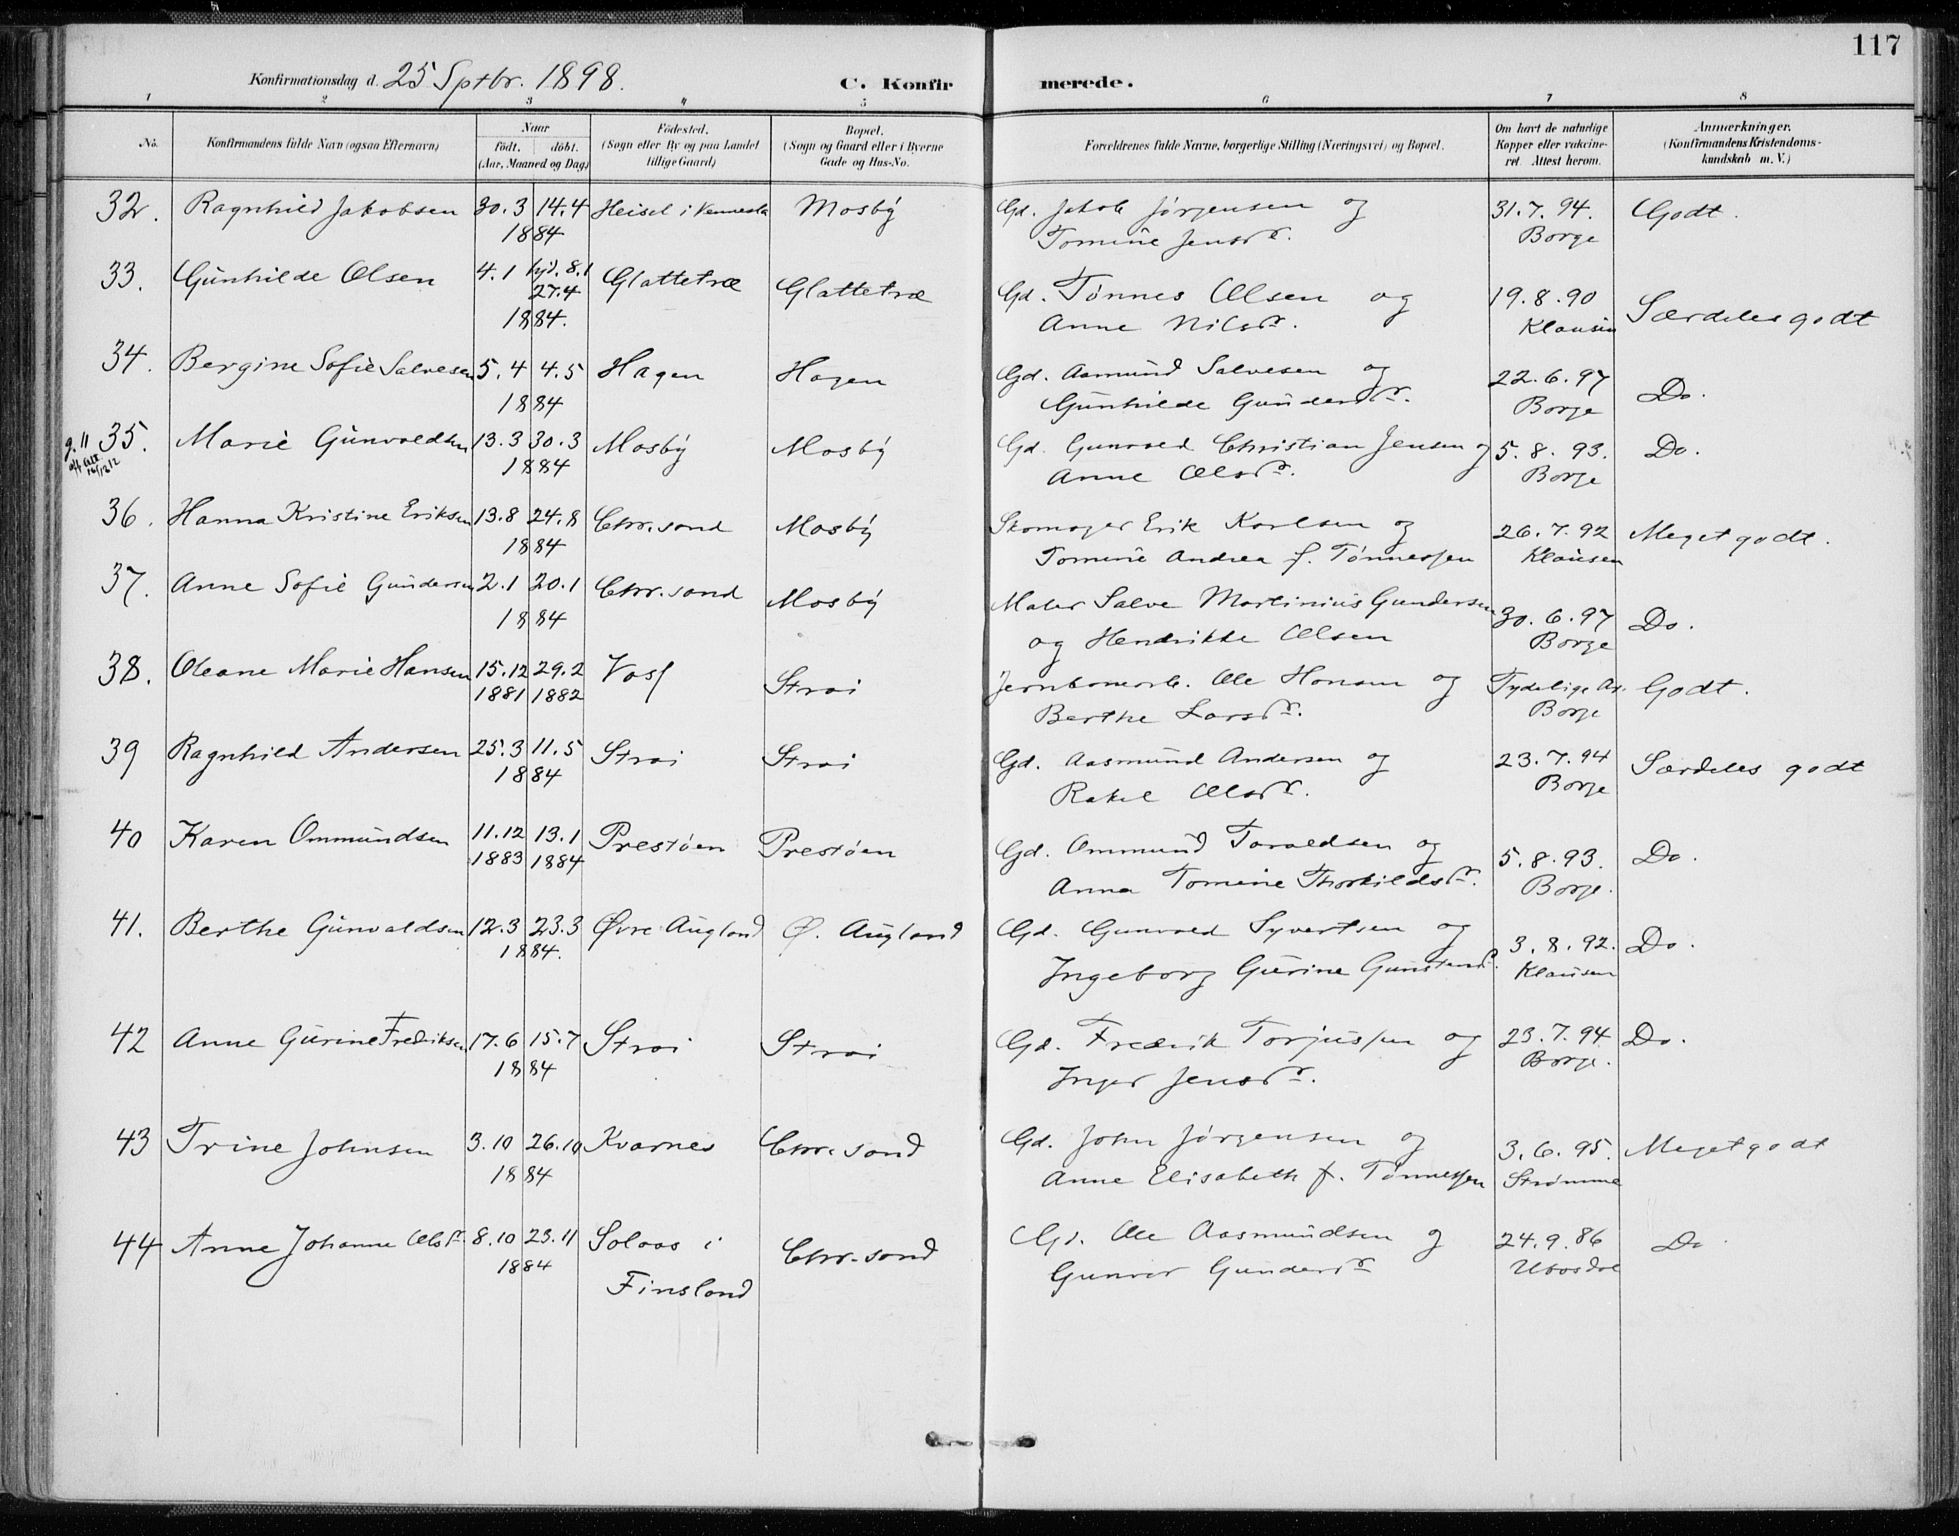 117
Konfirmationsdag d. 25 Sptbr. 1898.
C. Konfirmerede.
1 2 3 4 5 6 7 8
No.
Konfirmandens fulde Navn (ogsaa Efternavn)
Naar
født. døbt.
(Aar, Maaned og Dag)
Fødested.
(Sogn eller By og paa Landet
tillige Gaard)
Bopæl.
(Sogn og Gaard eller i Byerne
Gade og Hus-No.
Forældrenes fulde Navne, borgerlige Stilling (Næringsvei) og Bopæl.
Om havt de naturlige
Kopper eller vakcine-
ret. Attest herom.
Anmærkninger.
(Konfirmandens Kristendoms-
kundskab m. V.)
32. Ragnhild Jakobsen 30.3 14.4 Heisel i Vennesla Mosby Gd. Jakob Jørgensen og 31.7.94. Godt.
1884 Tomine Jensdr. Borge
33. Gunhilde Olsen 4.1 hjd. 8.1 Glattetræ Glattetræ Gd. Tønnes Olsen og 19.8.90 Særdeles godt
27.4
1884. Anne Nilsdr. Klausen
34. Bergine Sofie Salvesen 5.4 4.5 Hagen Hagen Gd. Aasmund Salvesen og 22.6.97 Do.
1884 Gunhilde Gundersdr. Borge
35. Marie Gunvaldsen 13.3 30.3 Mosby Mosby Gd. Gunvald Christian Jensen og 5.8.93. Do.
1884 Anne Olsdr. Borge
36. Hanna Kristine Eriksen 13.8 24.8 Chr.sand Mosby Skomager Erik Karlsen og 26.7.92 Meget godt.
1884 Tomine Andrea f. Tønnessen Klausen
37. Anne Sofie Gundersen 2.1 20.1 Chr.sand Mosby Maler Salve Martinius Gundersen 30.6.97 Do.
1884 og Hendrikke Olsen Borge
38. Oleane Marie Hansen 15.12 29.2 Voss Strai Jernbanearb. Ole Hansen og Tydelige Ar. Godt.
1881 1882 Berthe Larsdr. Borge
39 Ragnhild Andersen 25.3 11.5 Strai Strai Gd. Aasmund Andersen og 23.7.94 Særdeles godt
1884 Rakel Olsdr. Borge
40 Karen Ommundsen 11.12 13.1 Prestøen Prestøen Gd. Ommund Taraldsen og 5.8.93. Do.
1883 1884 Anna Tomine Thorkildsdr. Borge.
41. Berthe Gunvaldsen 12.3 23.3 Øvre Augland Ø. Augland Gd. Gunvald Syvertsen og 3.8.92. Do.
1884. Ingeborg Gurine Gunstensdr. Klausen
42 Anne Gurine Fredriksen 17.6 15.7 Strai Strai Gd. Fredrik Torjussen og 23.7.94 Do.
1884 Inger Jensdr. Borge.
43 Trine Johnsen 3.10 26.10 Kvarnes Chr.sand Gd. John Jørgensen og 3.6.95. Meget godt
1884 Anne Elisabeth f. Tønnessen Strømme
44 Anne Johanne Olsdr. 8.10 23.11 Solaas i Chr.sand Gd. Ole Aasmundsen og 24.9.86 Do
1884 Finsland Gunvor Gundersdr Ubosdal